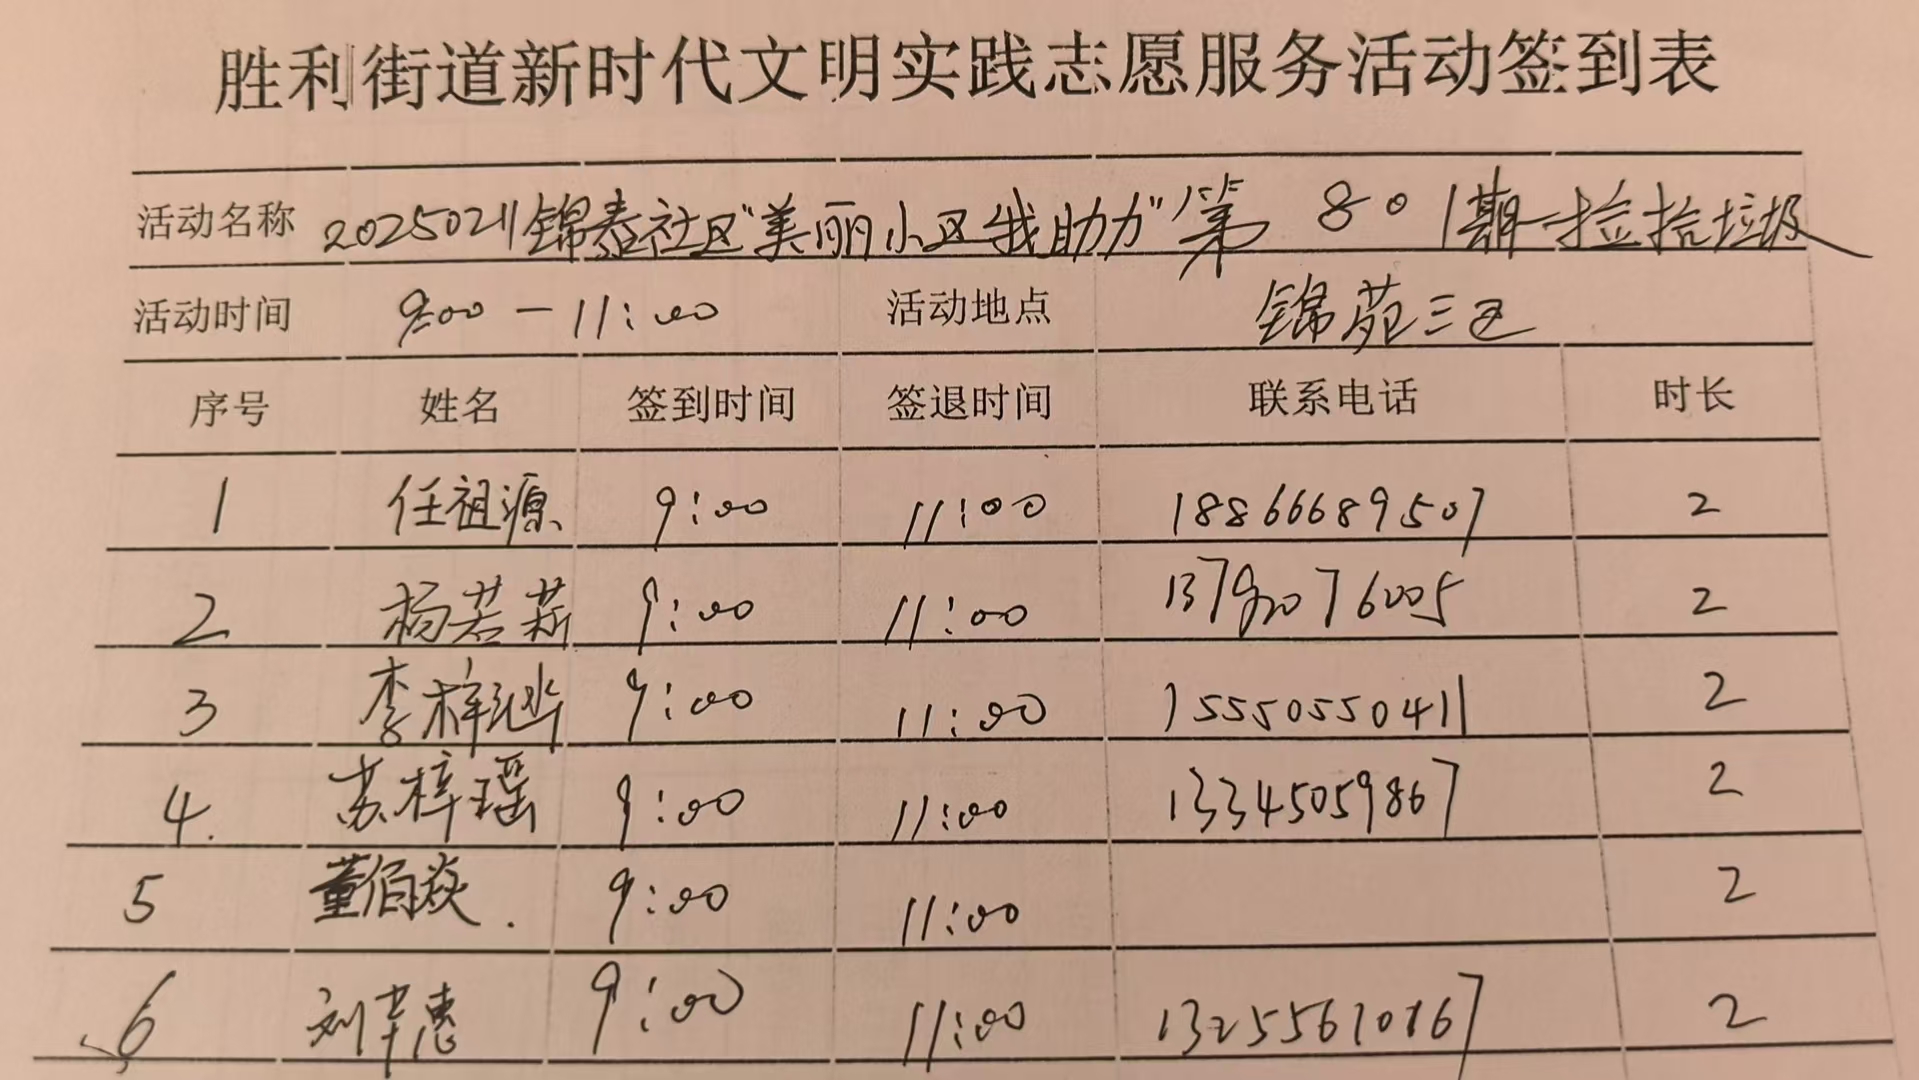 胜利街道新时代文明实践志愿服务活动签到表
活动名称 20250211锦泰社区"美丽小区我助力"第801期-捡拾垃圾
活动时间 9:00-11:00 活动地点 锦苑三区
序号 姓名 签到时间 签退时间 联系电话 时长
1 任祖源 9:00 11:00 18866689507 2
2 杨若菥 9:00 11:00 13792076005 2
3 李梓 9:00 11:00 15550550411 2
4. 苏梓瑶 9:00 11:00 13345059867 2
5 董佰焱. 9:00 11:00 2
6 刘惠 9:00 11:00 2